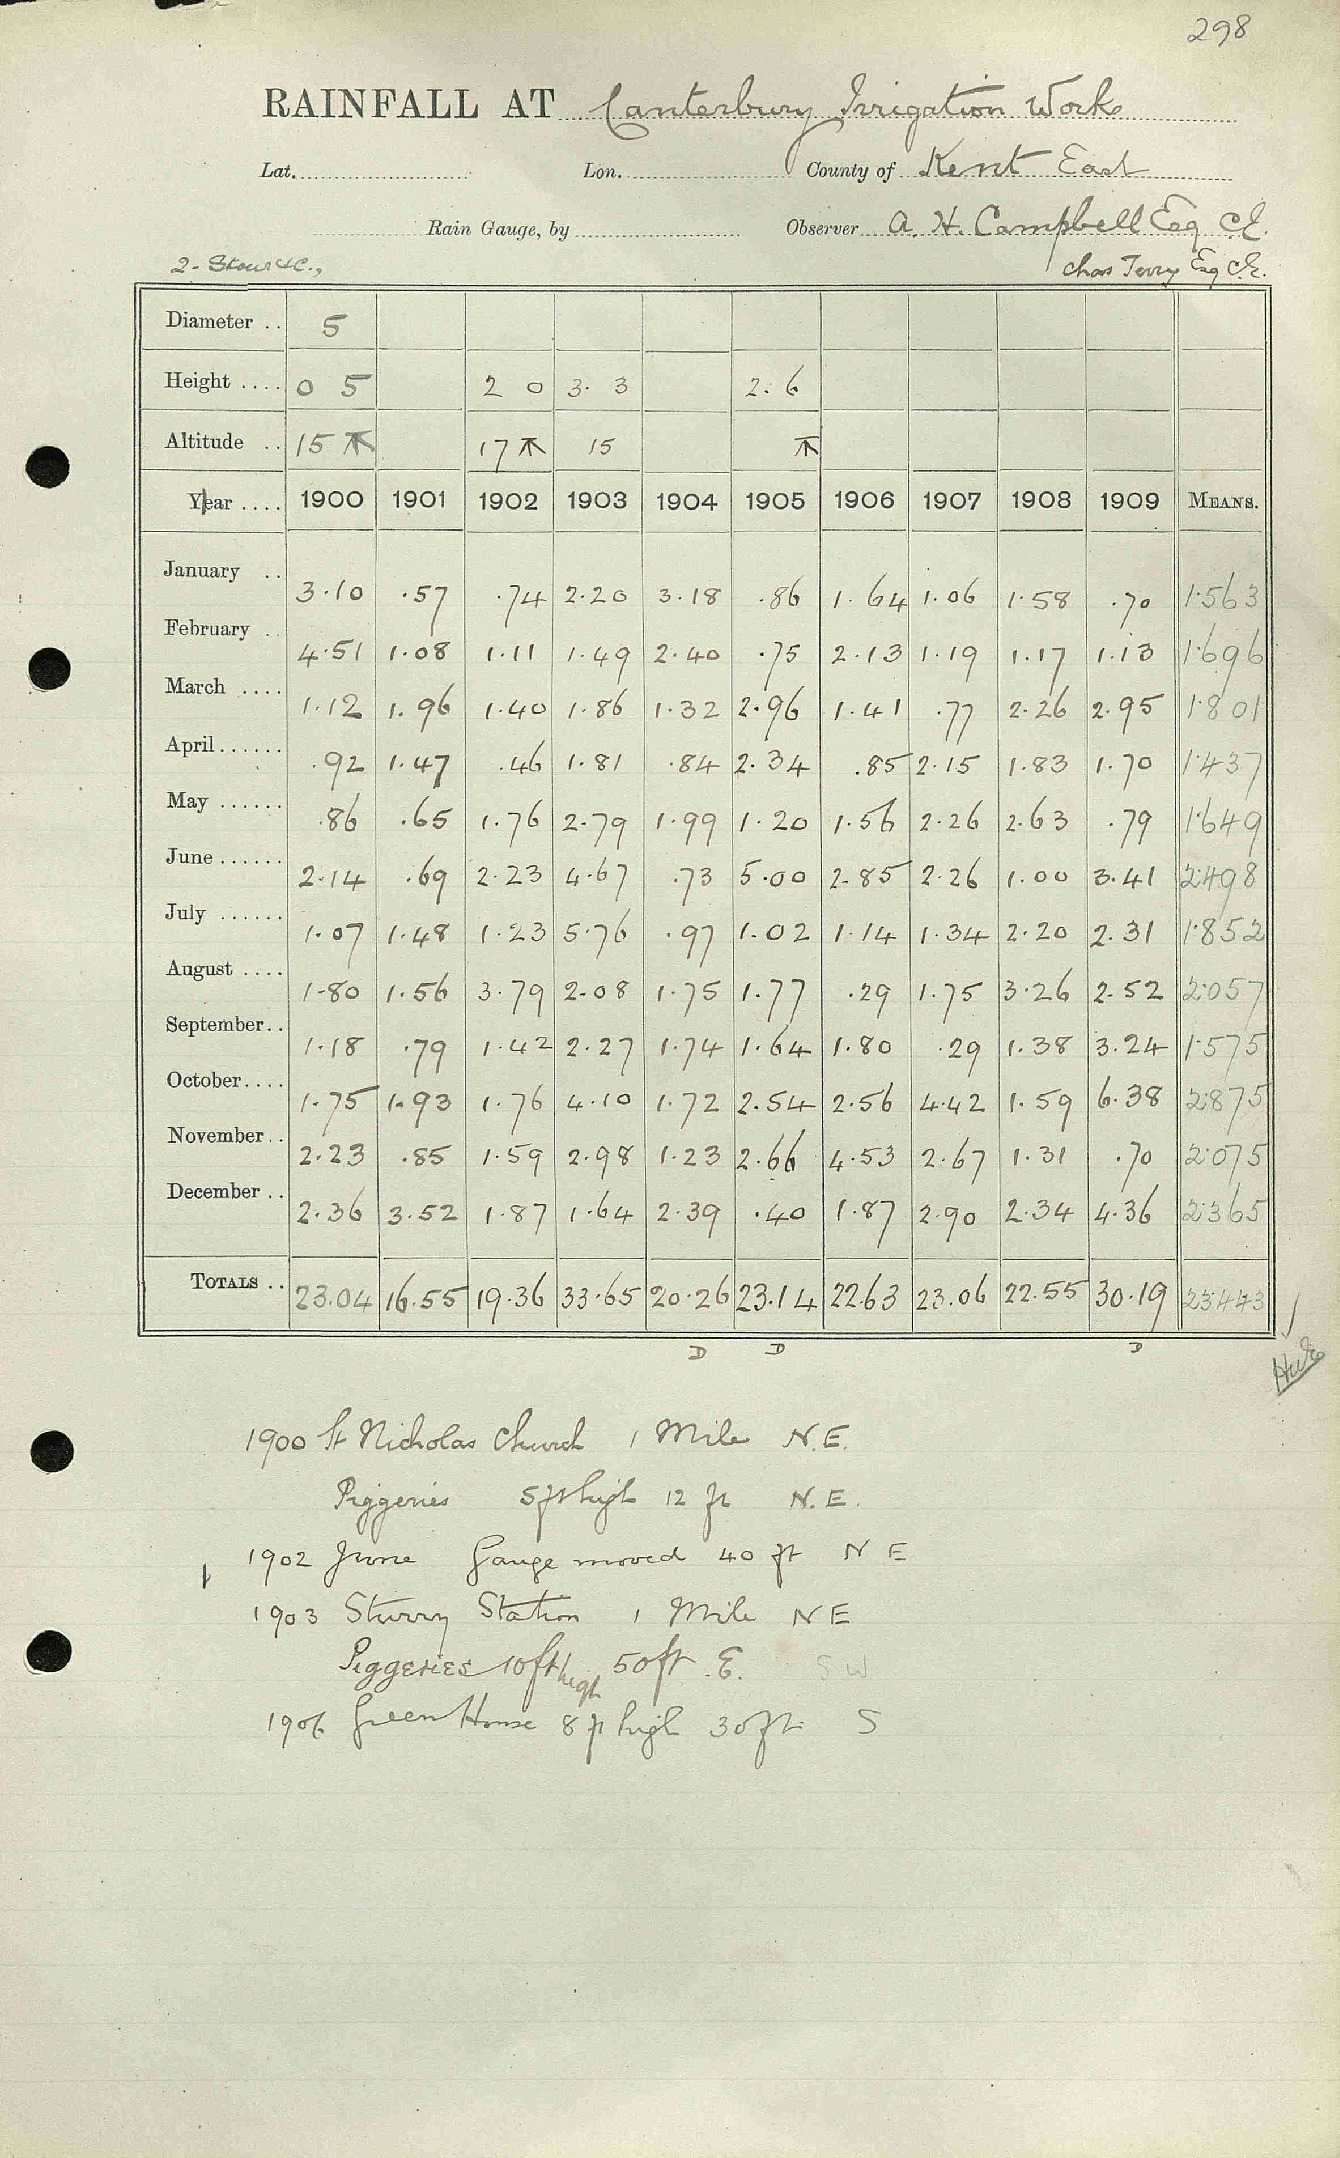 298
RAINFALL AT Canterbury Irrigation Works
Lat. Lon. County of Kent East
Rain Gauge, by Observer A. H. Campbell Esq C.E.
2. Stour &c., Chas Terry Esq C.E.
Diameter .. 5
Height .... 0 5 2 0 3. 3 2. 6
Altitude .. 15 17 15
Year .... 1900 1901 1902 1903 1904 1905 1906 1907 1908 1909 MEANS.
January .. 3.10 .57 .74 2.20 3.18 .86 1.64 1.06 1.58 .70 1.563
February . 4.51 1.08 1.11 1.49 2.40 .75 2.13 1.19 1.17 1.13 1.696
March .... 1.12 1.96 1.40 1.86 1.32 2.96 1.41 .77 2.26 2.95 1.801
April...... .92 1.47 .46 1.81 .84 2.34 .85 2.15 1.83 1.70 1.437
May ...... .86 .65 1.76 2.79 1.99 1.20 1.56 2.26 2.63 .79 1.649
June ...... 2.14 .69 2.23 4.67 .73 5.00 2.85 2.26 1.00 3.41 2.498
July ...... 1.07 1.48 1.23 5.76 .97 1.02 1.14 1.34 2.20 2.31 1.852
August .... 1.80 1.56 3.79 2.08 1.75 1.77 .29 1.75 3.26 2.52 2.057
September.. 1.18 .79 1.42 2.27 1.74 1.64 1.80 .29 1.38 3.24 1.575
October.... 1.75 1.93 1.76 4.10 1.72 2.54 2.56 4.42 1.59 6.38 2.875
November.. 2.23 .85 1.59 2.98 1.23 2.66 4.53 2.67 1.31 .70 2.075
December .. 2.36 3.52 1.87 1.64 2.39 .40 1.87 2.90 2.34 4.36 2.365
TOTALS .. 23.04 16.55 19.36 33.65 20.26 23.14 22.63 23.06 22.55 30.19 23.443
D D D
1900 St Nicholas Church 1 Mile N.E.
Piggeries 5 ft high 12 ft N.E.
1902 June Gauge moved 40 ft N E
1903 Sturry Station 1 Mile N E
Piggeries 10 ft high 50 ft E. S W
1906 Green House 8 ft high 30 ft S